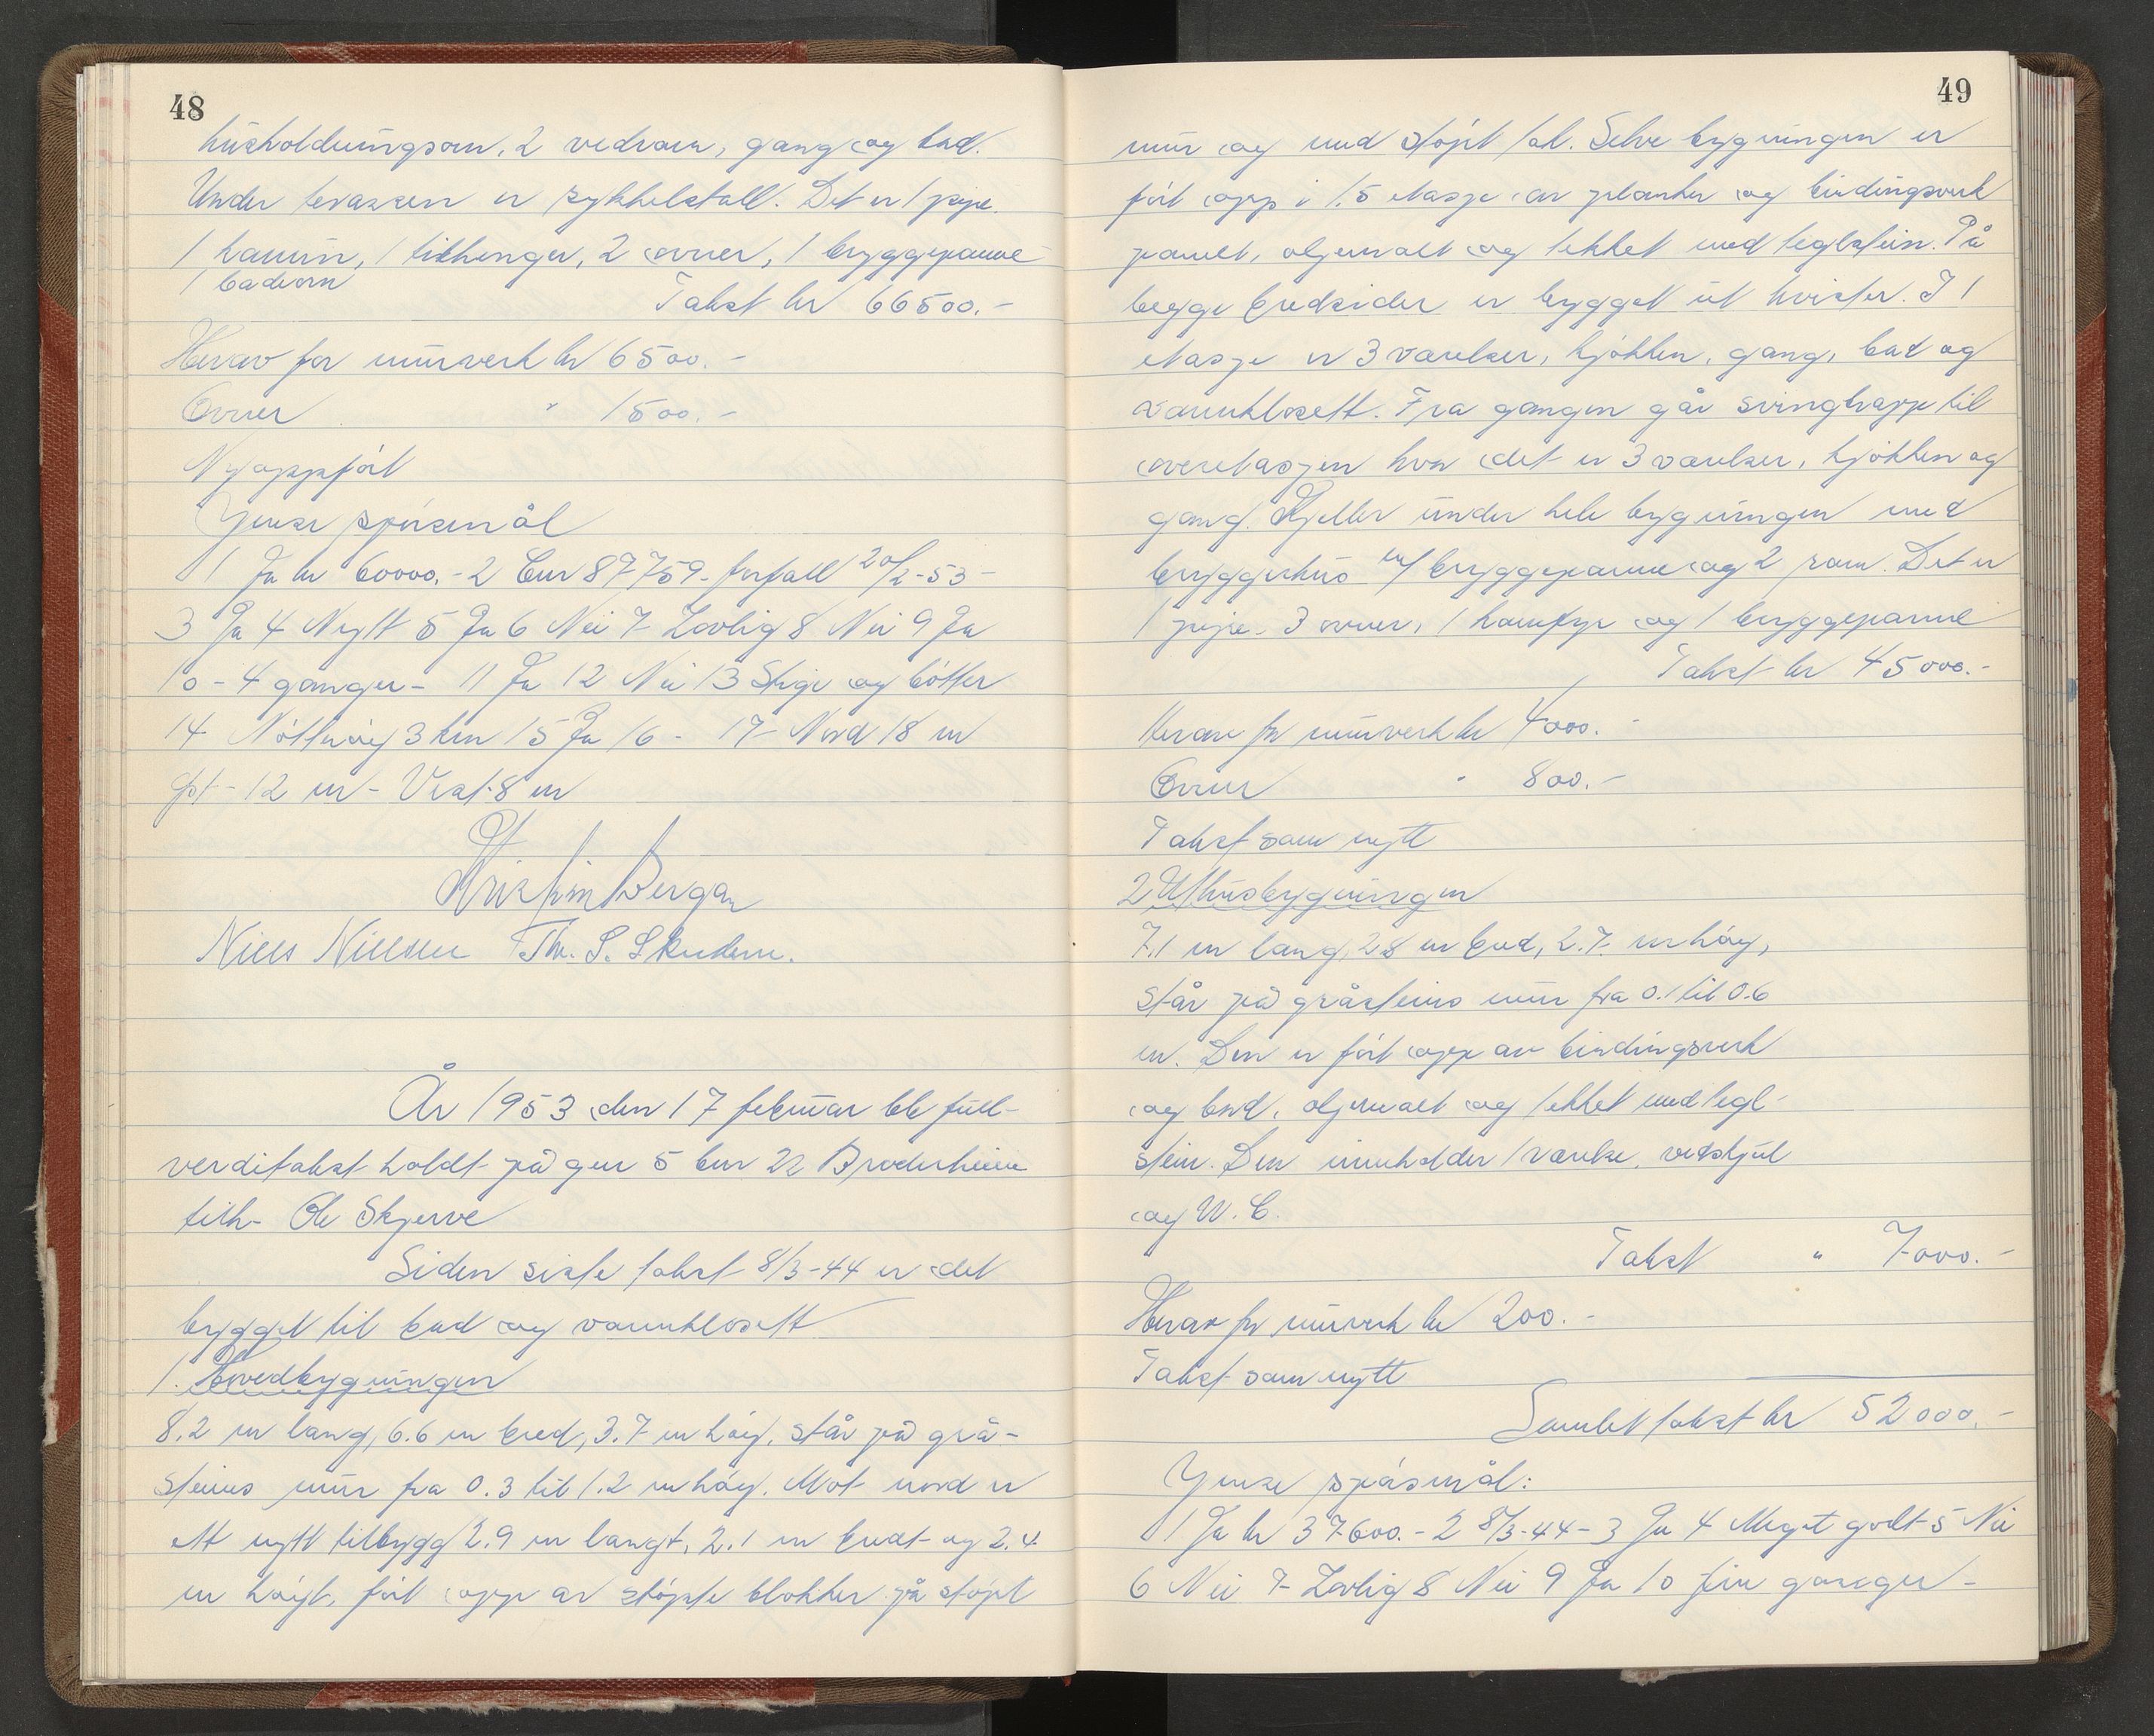 48
husholdningsrom, 2 vedrom, gang og bad.
Under terassen er sykkelstall. Det er 1 pipe
1 kamin, 1 tilhenger, 2 ovner, 1 bryggepanne
1 badeovn
Takst kr 66500.-
Herav for murverk kr 6500.-
Ovner " 1500.-
Nyoppført
Ymse spørsmål
1 Ja kr 60000.- 2 Bnr 87759- forfall 20/2-53-
3 Ja 4 Nytt 5 Ja 6 Nei 7 Lovlig 8 Nei 9 Ja
10 - 4 ganger - 11 Ja 12 Nei 13 Stige og bøtter
14 Nøtterøy 3 km 15 Ja 16 - 17 Nord 18 m
Øst - 12 m - Vest - 8 m
Kristian Bergan
Niels Nielsen Th. S. Skeidem.
År 1953 den 17 februar ble full-
verditakst holdt på gnr 5 bnr 22 Broderheim
tilh- Ole Skjerve
Siden siste takst 8/3-44 er det
bygget til bad og vannklosett
1. Hovedbygningen
8.2 m lang, 6.6 m bred, 3.7 m høy, står på grå-
steins mur fra 0.3 til 1.2 m høy. Mot nord er
ett nytt tilbygg 2.9 m langt, 2.1 m bredt og 2.4
m høyt, ført opp av støpte blokker på støpt
49
mur og med støpt tak. Selve bygningen er
ført opp i 1.5 etasje av planker og bindingsverk
panelt, oljemalt og tekket med teglstein. På
begge bredsider er bygget ut kvister. I 1
etasje er 3 værelser, kjøkken, gang, bad og
vannklosett. Fra gangen går svingtrapp til
overetasjen hvor det er 3 værelser, kjøkken og
gang. Kjeller under hele bygningen med
bryggerhus m/ bryggepanne og 2 rom. Det er
1 pipe. 3 ovner, 1 komfyr og 1 bryggepanne
Takst kr 45000.-
Herav for murverk kr 4000.-
Ovner " 800.-
Takst som nytt
2 Uthusbygningen
7.1 m lang, 2.8 m bred, 2.7 m høy,
står på gråsteins mur fra 0.1 til 0.6
m. Den er ført opp av bindingsverk
og bord, oljemalt og tekket med tegl-
stein. Den inneholder 1 værelse, vedskjul
og W.C.
Takst " 7000.-
Herav for murverk kr 200.-
Takst som nytt
Samlet takst kr 52000.-
Ymse spørsmål:
1 Ja kr 37600.- 2 8/3-44- 3 Ja 4 Meget godt 5 Nei
6 Nei 7 Lovlig 8 Nei 9 Ja 10 Fire ganger -